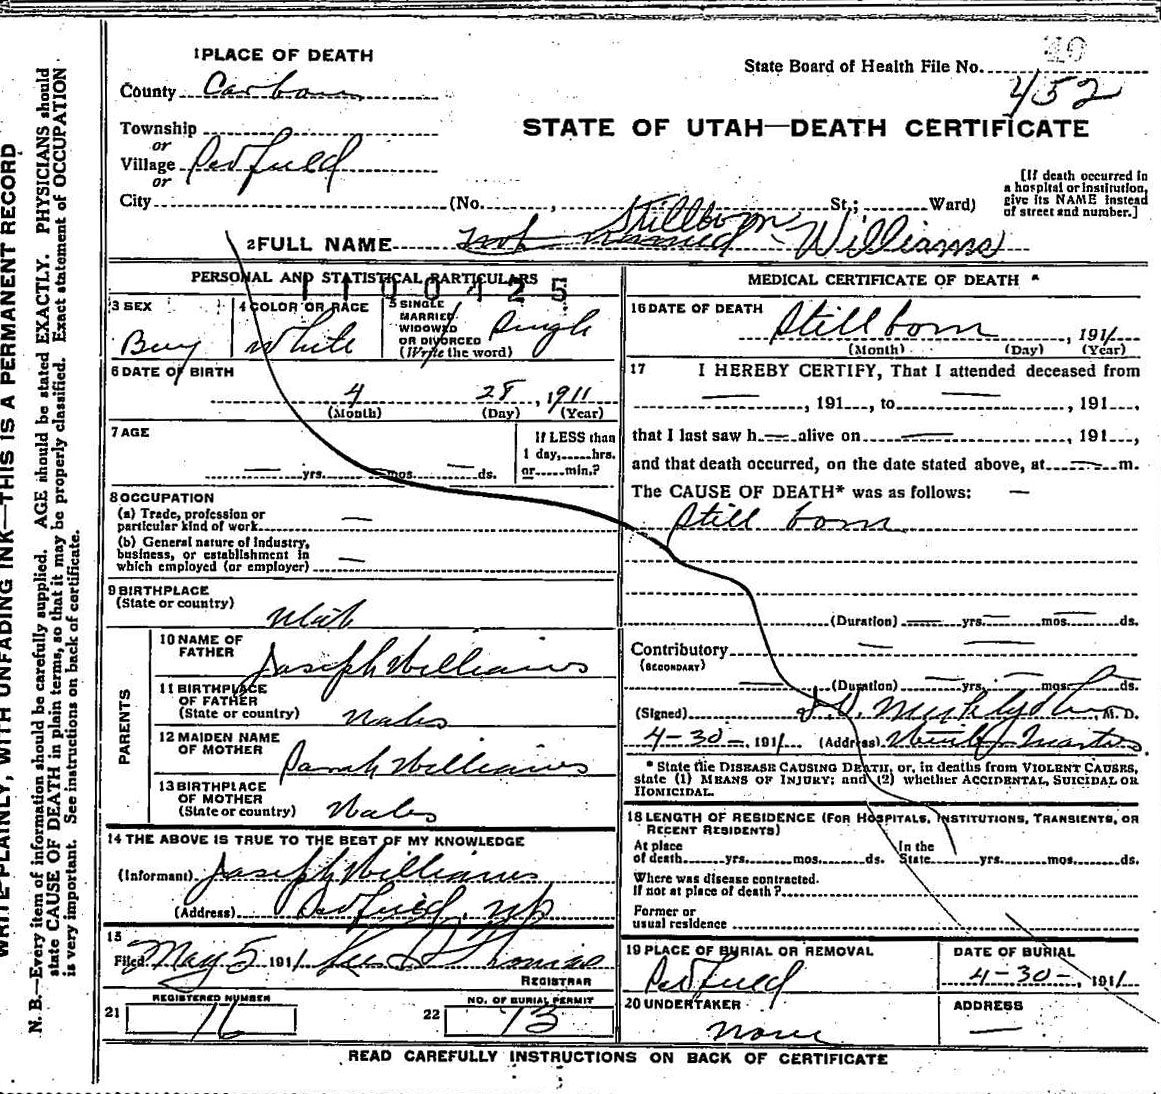 WRITE PLAINLY, WITH UNFADING INK—THIS IS A PERMANENT RECORD
N. B.—Every item of information should be carefully supplied. AGE should be stated EXACTLY. PHYSICIANS should
state CAUSE OF DEATH in plain terms, so that it may be properly classified. Exact statement of OCCUPATION
is very important. See instructions on back of certificate.
1 PLACE OF DEATH
County Carbon
Township
or
Village
or
City (No. , St.; Ward)
State Board of Health File No. 49
452
STATE OF UTAH—DEATH CERTIFICATE
[If death occurred in
a hospital or institution,
give its NAME instead
of street and number.]
2 FULL NAME Not named Stillborn - Williams
PERSONAL AND STATISTICAL PARTICULARS
1100425
3 SEX Boy
4 COLOR OR RACE White
5 SINGLE
MARRIED
WIDOWED
OR DIVORCED
(Write the word) Single
6 DATE OF BIRTH
4 28, 1911
(Month) (Day) (Year)
7 AGE
— yrs. — mos. — ds.
If LESS than
1 day, hrs.
or min.?
8 OCCUPATION
(a) Trade, profession or
particular kind of work —
(b) General nature of industry,
business, or establishment in
which employed (or employer) —
9 BIRTHPLACE
(State or country) Utah
PARENTS
10 NAME OF
FATHER Joseph Williams
11 BIRTHPLACE
OF FATHER
(State or country) Wales
12 MAIDEN NAME
OF MOTHER Sarah Williams
13 BIRTHPLACE
OF MOTHER
(State or country) Wales
14 THE ABOVE IS TRUE TO THE BEST OF MY KNOWLEDGE
(Informant) Joseph Williams
(Address)
15
Filed May 5 1911 Thomas
REGISTRAR
REGISTERED NUMBER
21 76
NO. OF BURIAL PERMIT
22 73
MEDICAL CERTIFICATE OF DEATH *
16 DATE OF DEATH
Stillborn, 1911
(Month) (Day) (Year)
17 I HEREBY CERTIFY, That I attended deceased from
—, 191 , to —, 191 ,
that I last saw h — alive on —, 191 ,
and that death occurred, on the date stated above, at — m.
The CAUSE OF DEATH* was as follows: —
Still born
(Duration) — yrs. — mos. — ds.
Contributory — —
(SECONDARY)
— (Duration) — yrs. — mos. ds.
(Signed) M. D.
4-30-, 1911 (Address)
* State the DISEASE CAUSING DEATH, or, in deaths from VIOLENT CAUSES,
state (1) MEANS OF INJURY; and (2) whether ACCIDENTAL, SUICIDAL OR
HOMICIDAL.
18 LENGTH OF RESIDENCE (FOR HOSPITALS, INSTITUTIONS, TRANSIENTS, OR
RECENT RESIDENTS)
At place
of death yrs. mos. ds.
In the
State yrs. mos. ds.
Where was disease contracted.
If not at place of death?
Former or
usual residence
19 PLACE OF BURIAL OR REMOVAL
DATE OF BURIAL
4-30-, 1911
20 UNDERTAKER
None
ADDRESS
—
READ CAREFULLY INSTRUCTIONS ON BACK OF CERTIFICATE